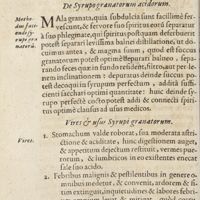 De Syrupo granatorum acidorum.
Metho-
dus faci-
endi sy-
rupi gra-
natorũ.
MAla granata, quia subdulcia sunt facillimè fer-
vescunt, & fervore suo spiritus eorũ separatur
à phlegmate, qui spiritus postquam deferbuerit
potest separari levissima balnei distillatione, ut do-
cuimus antea, & magna suum, quod est succus
granatorum potest optimè depurari balneo, sepa-
rando feces quæ in fundo resident, filtroque per le-
nem inclinationem: depuratus deinde succus po-
test decoqui in syrupum perfectum, addita suffi-
cienti sacchari optimi quantitate, & deinde syru-
po perfectè cocto potest addi & connecti spiri-
tus optimè clausus ad usus medicos.
Vires & usus Syrupi granatorum.
Vires.
1. Stomachum valde roborat, sua moderata astri-
ctione & aciditate, hunc digestionem auget,
& appetitum dejectum restituit, vermes pue-
rorum, & lumbricos in eo existentes enecat
fale suo acido.
2. Febribus malignis & pestilentibus in genere o-
mnibus medetur, & convenit, ardorem & si-
tim extinguit, inquietudines & labores febri-